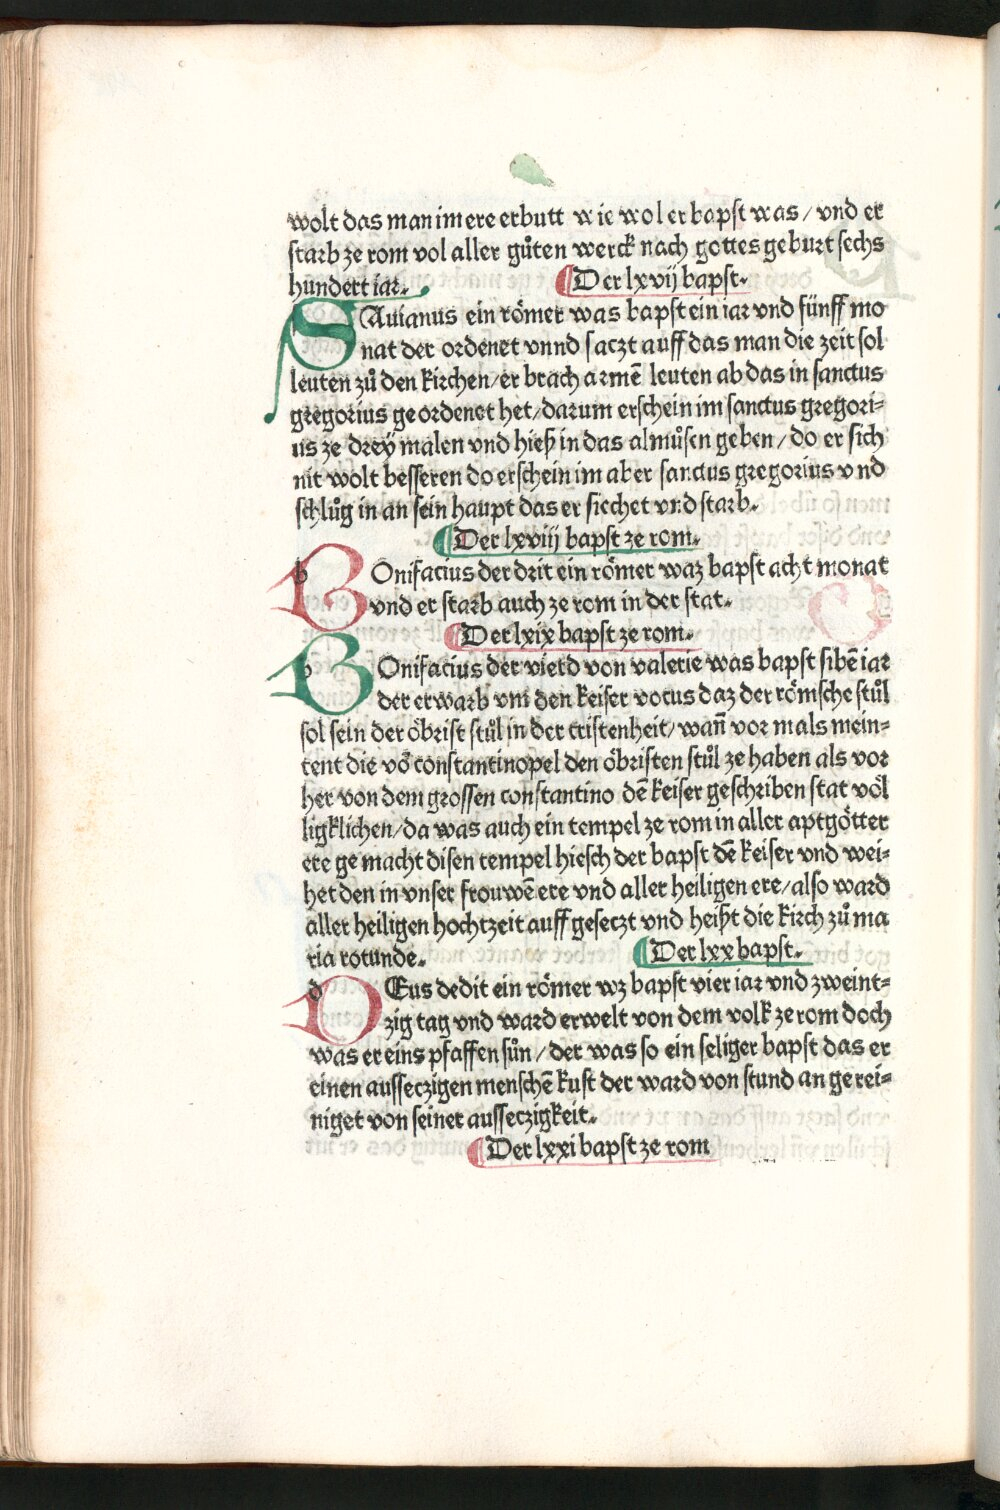 wolt das man im ere erbutt wie wol er bapst was / vnd er
starb ze rom vol aller gůten werck nach gottes geburt sechs
hundert iar. Der lxvij bapst.
SAuianus ein römer was bapst ein iar vnd fünff mo
nat der ordenet vnnd saczt auff das man die zeit sol
leuten zů den kirchen/er brach armē leuten ab das in sanctus
gregorius geordenet het/darum erschein im sanctus gregori⸗
us ze dreÿ malen vnd hieß in das almůsen geben/do er sich
nit wolt besseren do erschein im aber sanctus gregorius vnd
schlůg in an sein haupt das er siechet vnd starb.
Der lxviij bapst ze rom.
BOnifacius der drit ein römer waz bapst acht monat
vnd er starb auch ze rom in der stat.
Der lxix bapst ze rom.
BOnifacius der vierd von valerie was bapst sibē iar
der erwarb vm den keiser vocus daz der römsche stůl
sol sein der öbrist stůl in der cristenheit/wañ vor mals mein⸗
tent die vō constantinopel den öbristen stůl ze haben als vor
her von dem grossen constantino dē keiser geschriben stat völ
ligklichen/da was auch ein tempel ze rom in aller aptgötter
ere gemacht disen tempel hiesch der bapst dē keiser vnd wei⸗
het den in vnser frouwē ere vnd aller heiligen ere/also ward
aller heiligen hochtzeit auff gesetzt vnd heißt die kirch zů ma
ria rotunde. Der lxx bapst.
DEus dedit ein römer wz bapst vier iar vnd zweint⸗
zig tag vnd ward erwelt von dem volk ze rom doch
was er eins pfaffen sůn/der was so ein seliger bapst das er
einen ausseczigen menschē kust der ward von stund an gerei⸗
niget von seiner ausseczigkeit.
Der lxxi bapst ze rom